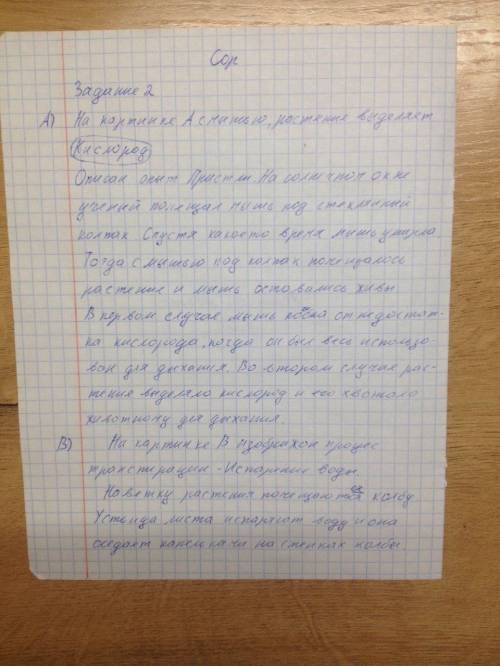 Сор
Задание 2
А) На картинке А с мышью, растение выделяет
Кислород
Описан опыт Пристли. На солнечном окне
ученый помещал мышь под стеклянный
колпак Спустя какоето время мышь умерла.
Тогда с мышью под колпак помещалось
растение и мышь оставались живы
В первом случае мышь от недостат-
ка кислорода, когда он был весь использо-
ван для дыхания. Во втором случае рас-
тение выделяло кислород и его хватало
животному для дыхания.
В) На картинке В изображон процес
транспирации - Испарение воды.
На ветку растения помещают колбу
Устьица листа испаряют воду и она
оседает капельками на стенках колбы.